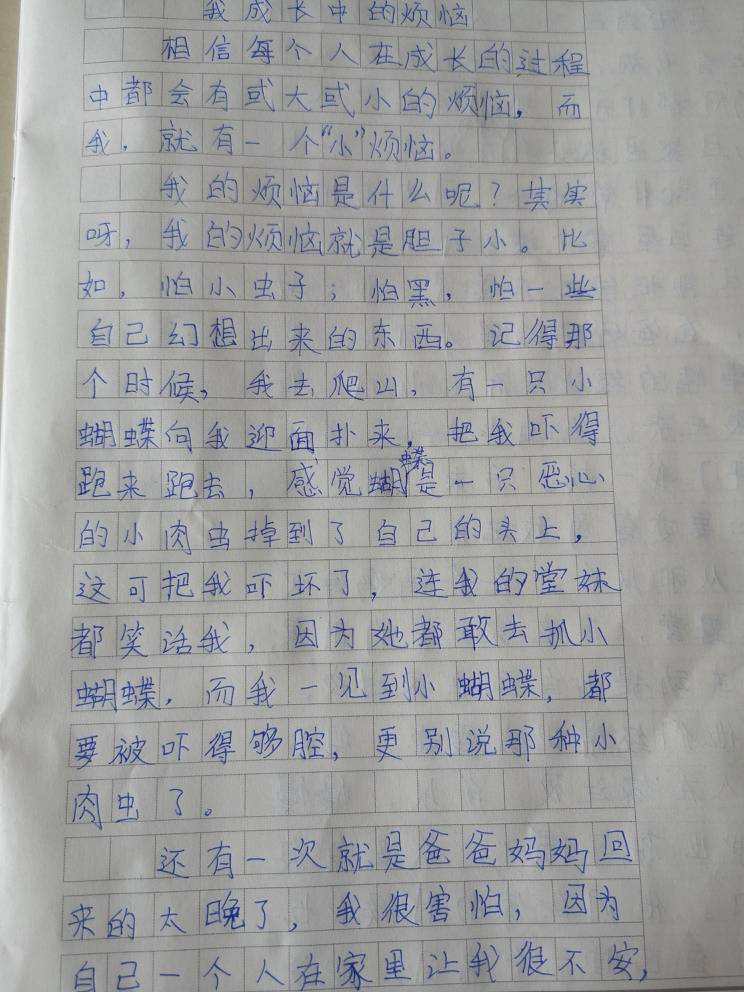 我成长中的烦恼
相信每个人在成长的过程
中都会有或大或小的烦恼，而
我，就有一个“小”烦恼。
我的烦恼是什么呢？其实
呀，我的烦恼就是胆子小。比
如，怕小虫子；怕黑，怕一些
自己幻想出来的东西。记得那
个时候，我去爬山，有一只小
蝴蝶向我迎面扑来，把我吓得
跑来跑去，感觉蝴蝶是一只恶心
的小肉虫掉到了自己的头上，
这可把我吓坏了，连我的堂妹
都笑话我，因为她都敢去抓小
蝴蝶，而我一见到小蝴蝶，都
要被吓得够腔，更别说那种小
肉虫了。
还有一次就是爸爸妈妈回
来的太晚了，我很害怕，因为
自己一个人在家里让我很不安，